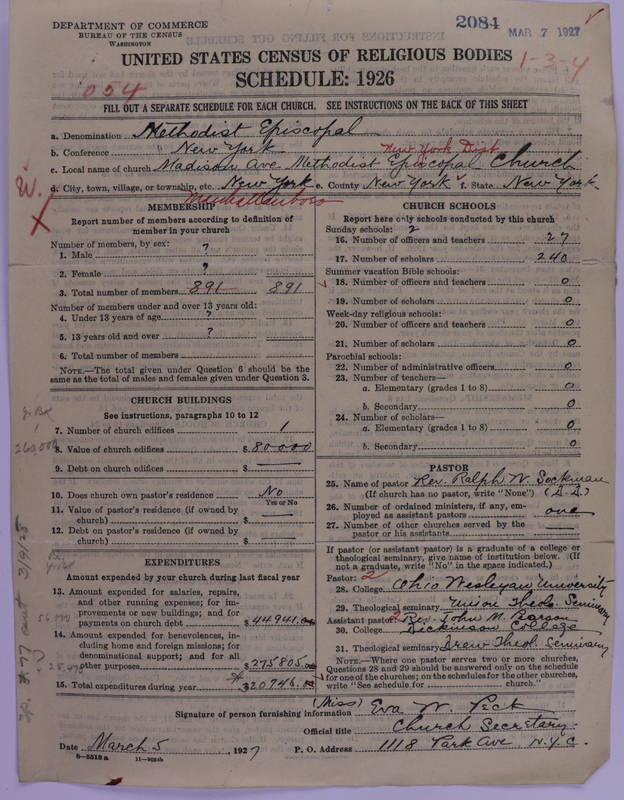 DEPARTMENT OF COMMERCE
BUREAU OF THE CENSUS
WASHINGTON
2084
MAR 7 1927
UNITED STATES CENSUS OF RELIGIOUS BODIES
SCHEDULE: 1926
1-3-4
054
FILL OUT A SEPARATE SCHEDULE FOR EACH CHURCH. SEE INSTRUCTIONS ON THE BACK OF THIS SHEET
a. Denomination Methodist Episcopal
b. Conference New York New York Dist
c. Local name of church Madison Ave Methodist Episcopal Church
d. City, town, village, or township, etc. New York e. County New York f. State New York
W.
X
MEMBERSHIP
Report number of members according to definition of
member in your church
Number of members, by sex:
1. Male ?
2. Female ?
3. Total number of members 891 891
Number of members under and over 13 years old:
4. Under 13 years of age ?
5. 13 years old and over ?
6. Total number of members
NOTE.—The total given under Question 6 should be the
same as the total of males and females given under Question 3.
CHURCH BUILDINGS
See instructions, paragraphs 10 to 12
7. Number of church edifices 1
8. Value of church edifices $ 80000
9. Debt on church edifices $ —
10. Does church own pastor's residence No
Yes or No
11. Value of pastor's residence (if owned by
church) $ —
12. Debt on pastor's residence (if owned by
church) $ —
EXPENDITURES
Amount expended by your church during last fiscal year
13. Amount expended for salaries, repairs,
and other running expenses; for im-
provements or new buildings; and for
payments on church debt $ 44941.00
14. Amount expended for benevolences, in-
cluding home and foreign missions; for
denominational support; and for all
other purposes $ 275805.00
15. Total expenditures during year $ 320746.00
CHURCH SCHOOLS
Report here only schools conducted by this church
Sunday schools: 2
16. Number of officers and teachers 27
17. Number of scholars 240
Summer vacation Bible schools:
18. Number of officers and teachers 0
19. Number of scholars 0
Week-day religious schools:
20. Number of officers and teachers 0
21. Number of scholars 0
Parochial schools:
22. Number of administrative officers 0
23. Number of teachers—
a. Elementary (grades 1 to 8) 0
b. Secondary 0
24. Number of scholars—
a. Elementary (grades 1 to 8) 0
b. Secondary 0
PASTOR
25. Name of pastor Rev. Ralph W. Sockman
(If church has no pastor, write "None") (D.D.)
26. Number of ordained ministers, if any, em-
ployed as assistant pastors one
27. Number of other churches served by the
pastor or his assistants
If pastor (or assistant pastor) is a graduate of a college or
theological seminary, give name of institution below. (If
not a graduate, write "No" in the space indicated.)
Pastor: 2
28. College Ohio Wesleyan University
29. Theological seminary Union Theol. Seminary
Assistant pastor: 2 Rev. John M. Pearson
30. College Dickinson College
31. Theological seminary Drew Theol. Seminary
NOTE.—Where one pastor serves two or more churches,
Questions 28 and 29 should be answered only on the schedule
for one of the churches; on the schedules for the other churches,
write "See schedule for church."
(Miss)
Signature of person furnishing information Eva W. Peck
Official title Church Secretary
Date March 5, 1927 P. O. Address 1118 Park Ave N.Y.C.
8-5518a 11-9084b